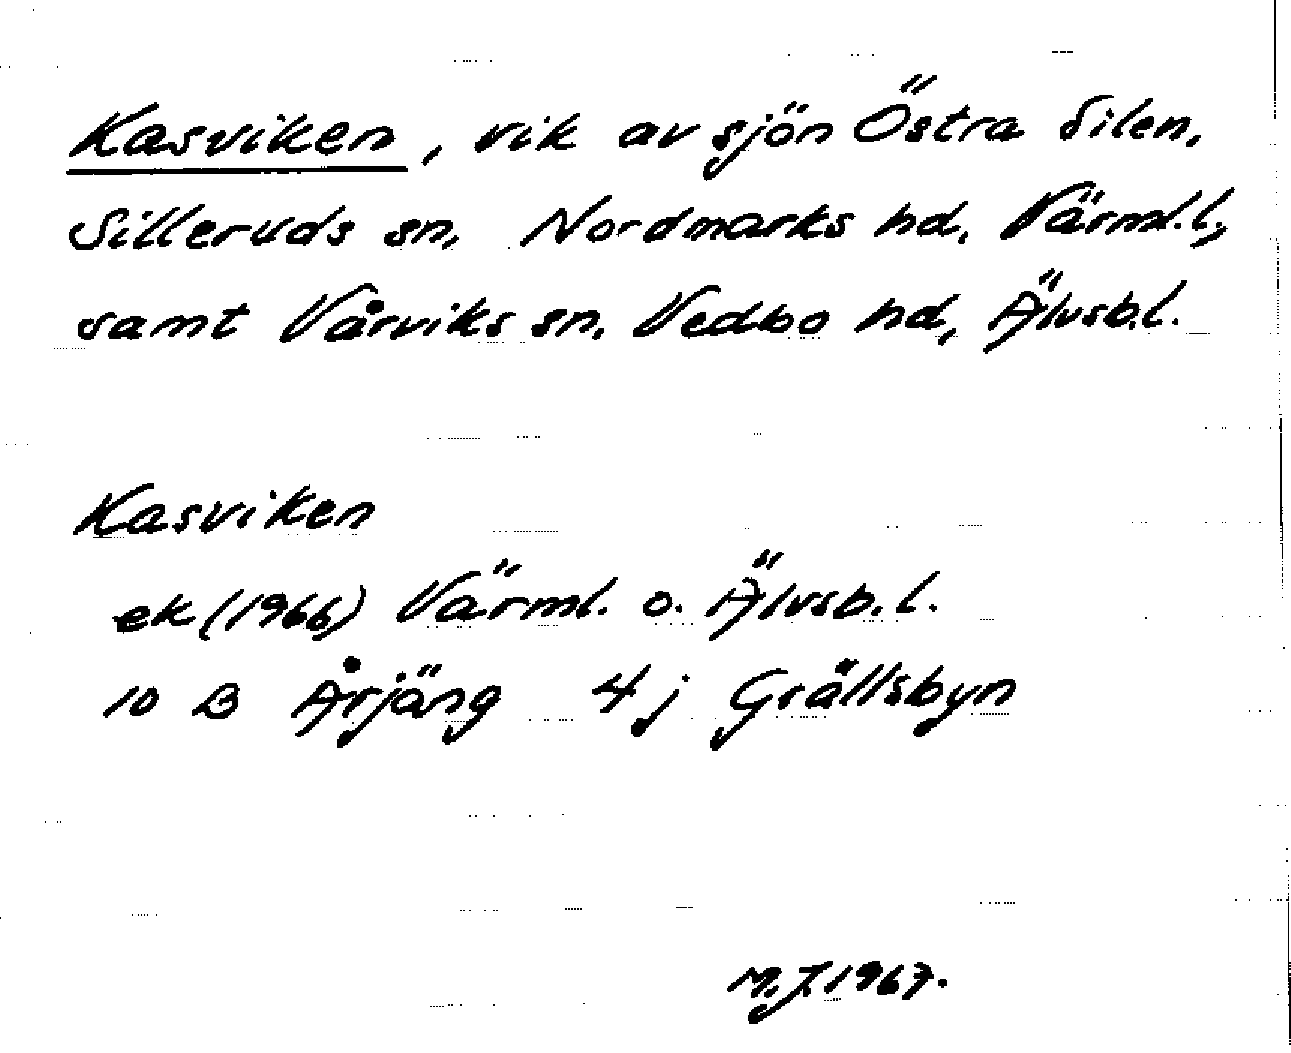 Kasviken, vik av sjön Östra Silen,
Silleruds sn, Nordmarks hd, Värml.l,
samt Vårviks sn, Vedbo hd, Älvsb.l.
Kasviken
ek (1966) Värml. o. Älvsb.l.
10 B Årjäng 4j Grällsbyn
M.J. 1967.